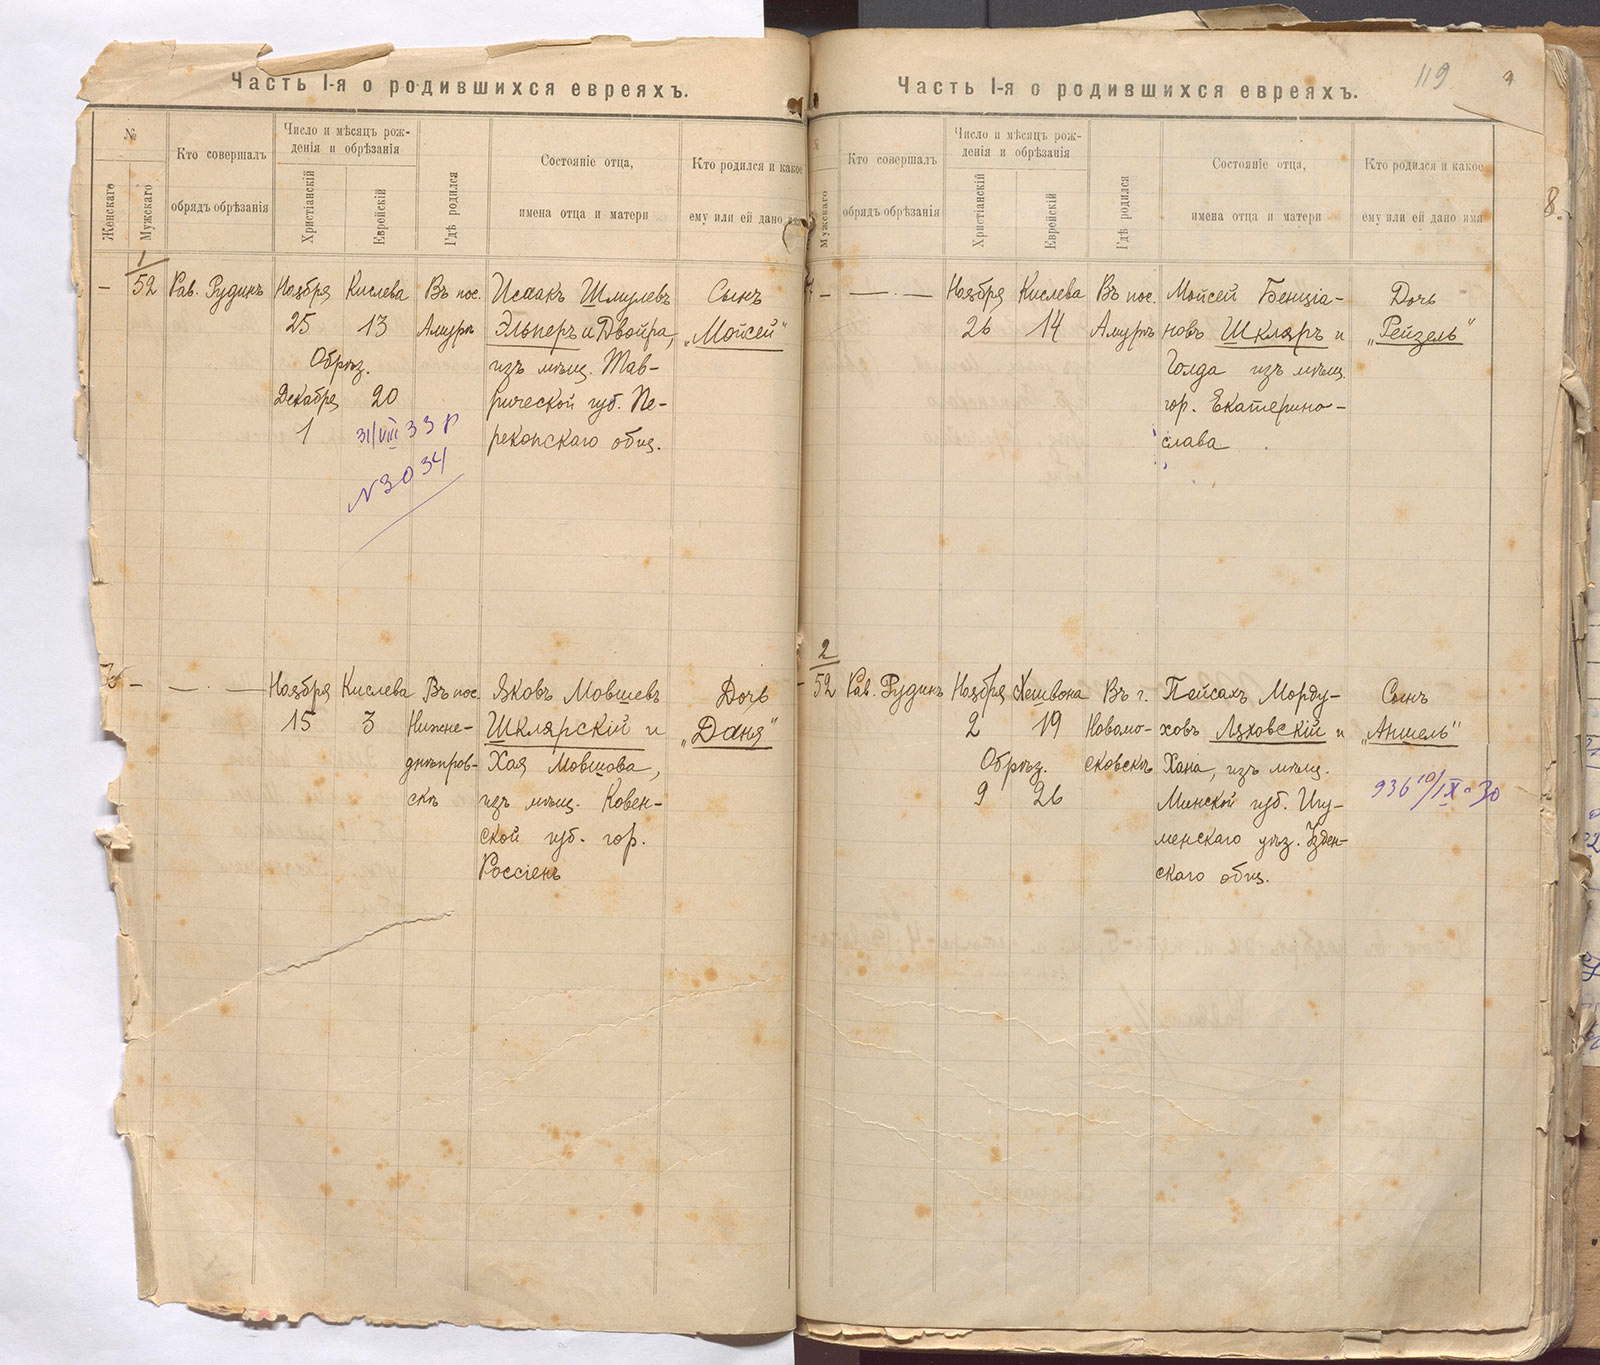 Часть I-я о родившихся евреяхъ.
№
Женскаго
Мужскаго
Кто совершалъ
обрядъ обрѣзанія
Число и мѣсяцъ рож-
денія и обрѣзанія
Христіанскій
Еврейскій
Гдѣ родился
Состояніе отца,
имена отца и матери
Кто родился и какое
ему или ей дано
–
1
52
Рав. Рудинъ
Ноября
25
Обрѣз.
Декабря
1
Кислева
13
20
31/VIII 33 г
N3034
Въ пос.
Амуръ
Исаакъ Шмулевъ
Эльперъ и Двойра,
изъ мѣщ. Тав-
рической губ. Пе-
рекопскаго общ.
Сынъ
„Мойсей“
–
— . —
Ноября
15
Кислева
3
Въ пос.
Нижне-
днѣпров-
скѣ
Яковъ Мовшевъ
Шклярскій и
Хая Мовшова,
изъ мѣщ. Ковен-
ской губ. гор.
Россіенъ
Дочь
„Даня“
Часть I-я о родившихся евреяхъ.
119
Мужскаго
Кто совершалъ
обрядъ обрѣзанія
Число и мѣсяцъ рож-
денія и обрѣзанія
Христіанскій
Еврейскій
Гдѣ родился
Состояніе отца,
имена отца и матери
Кто родился и какое
ему или ей дано имя
8.
–
— . —
Ноября
26
Кислева
14
Въ пос.
Амуръ
Мойсей Бенціа-
новъ Шкляръ и
Голда изъ мѣщ.
гор. Екатерино-
слава
Дочь
„Рейзель“
2
52
Рав. Рудинъ
Ноября
2
Обрѣз.
9
Хешвона
19
26
Въ г.
Новомо-
сковскѣ
Пейсахъ Морду-
ховъ Ляховскій и
Хана, изъ мѣщ.
Минской губ. Игу-
менскаго уѣз. Узден-
скаго общ.
Сынъ
„Аншель“
936 10/IX-30